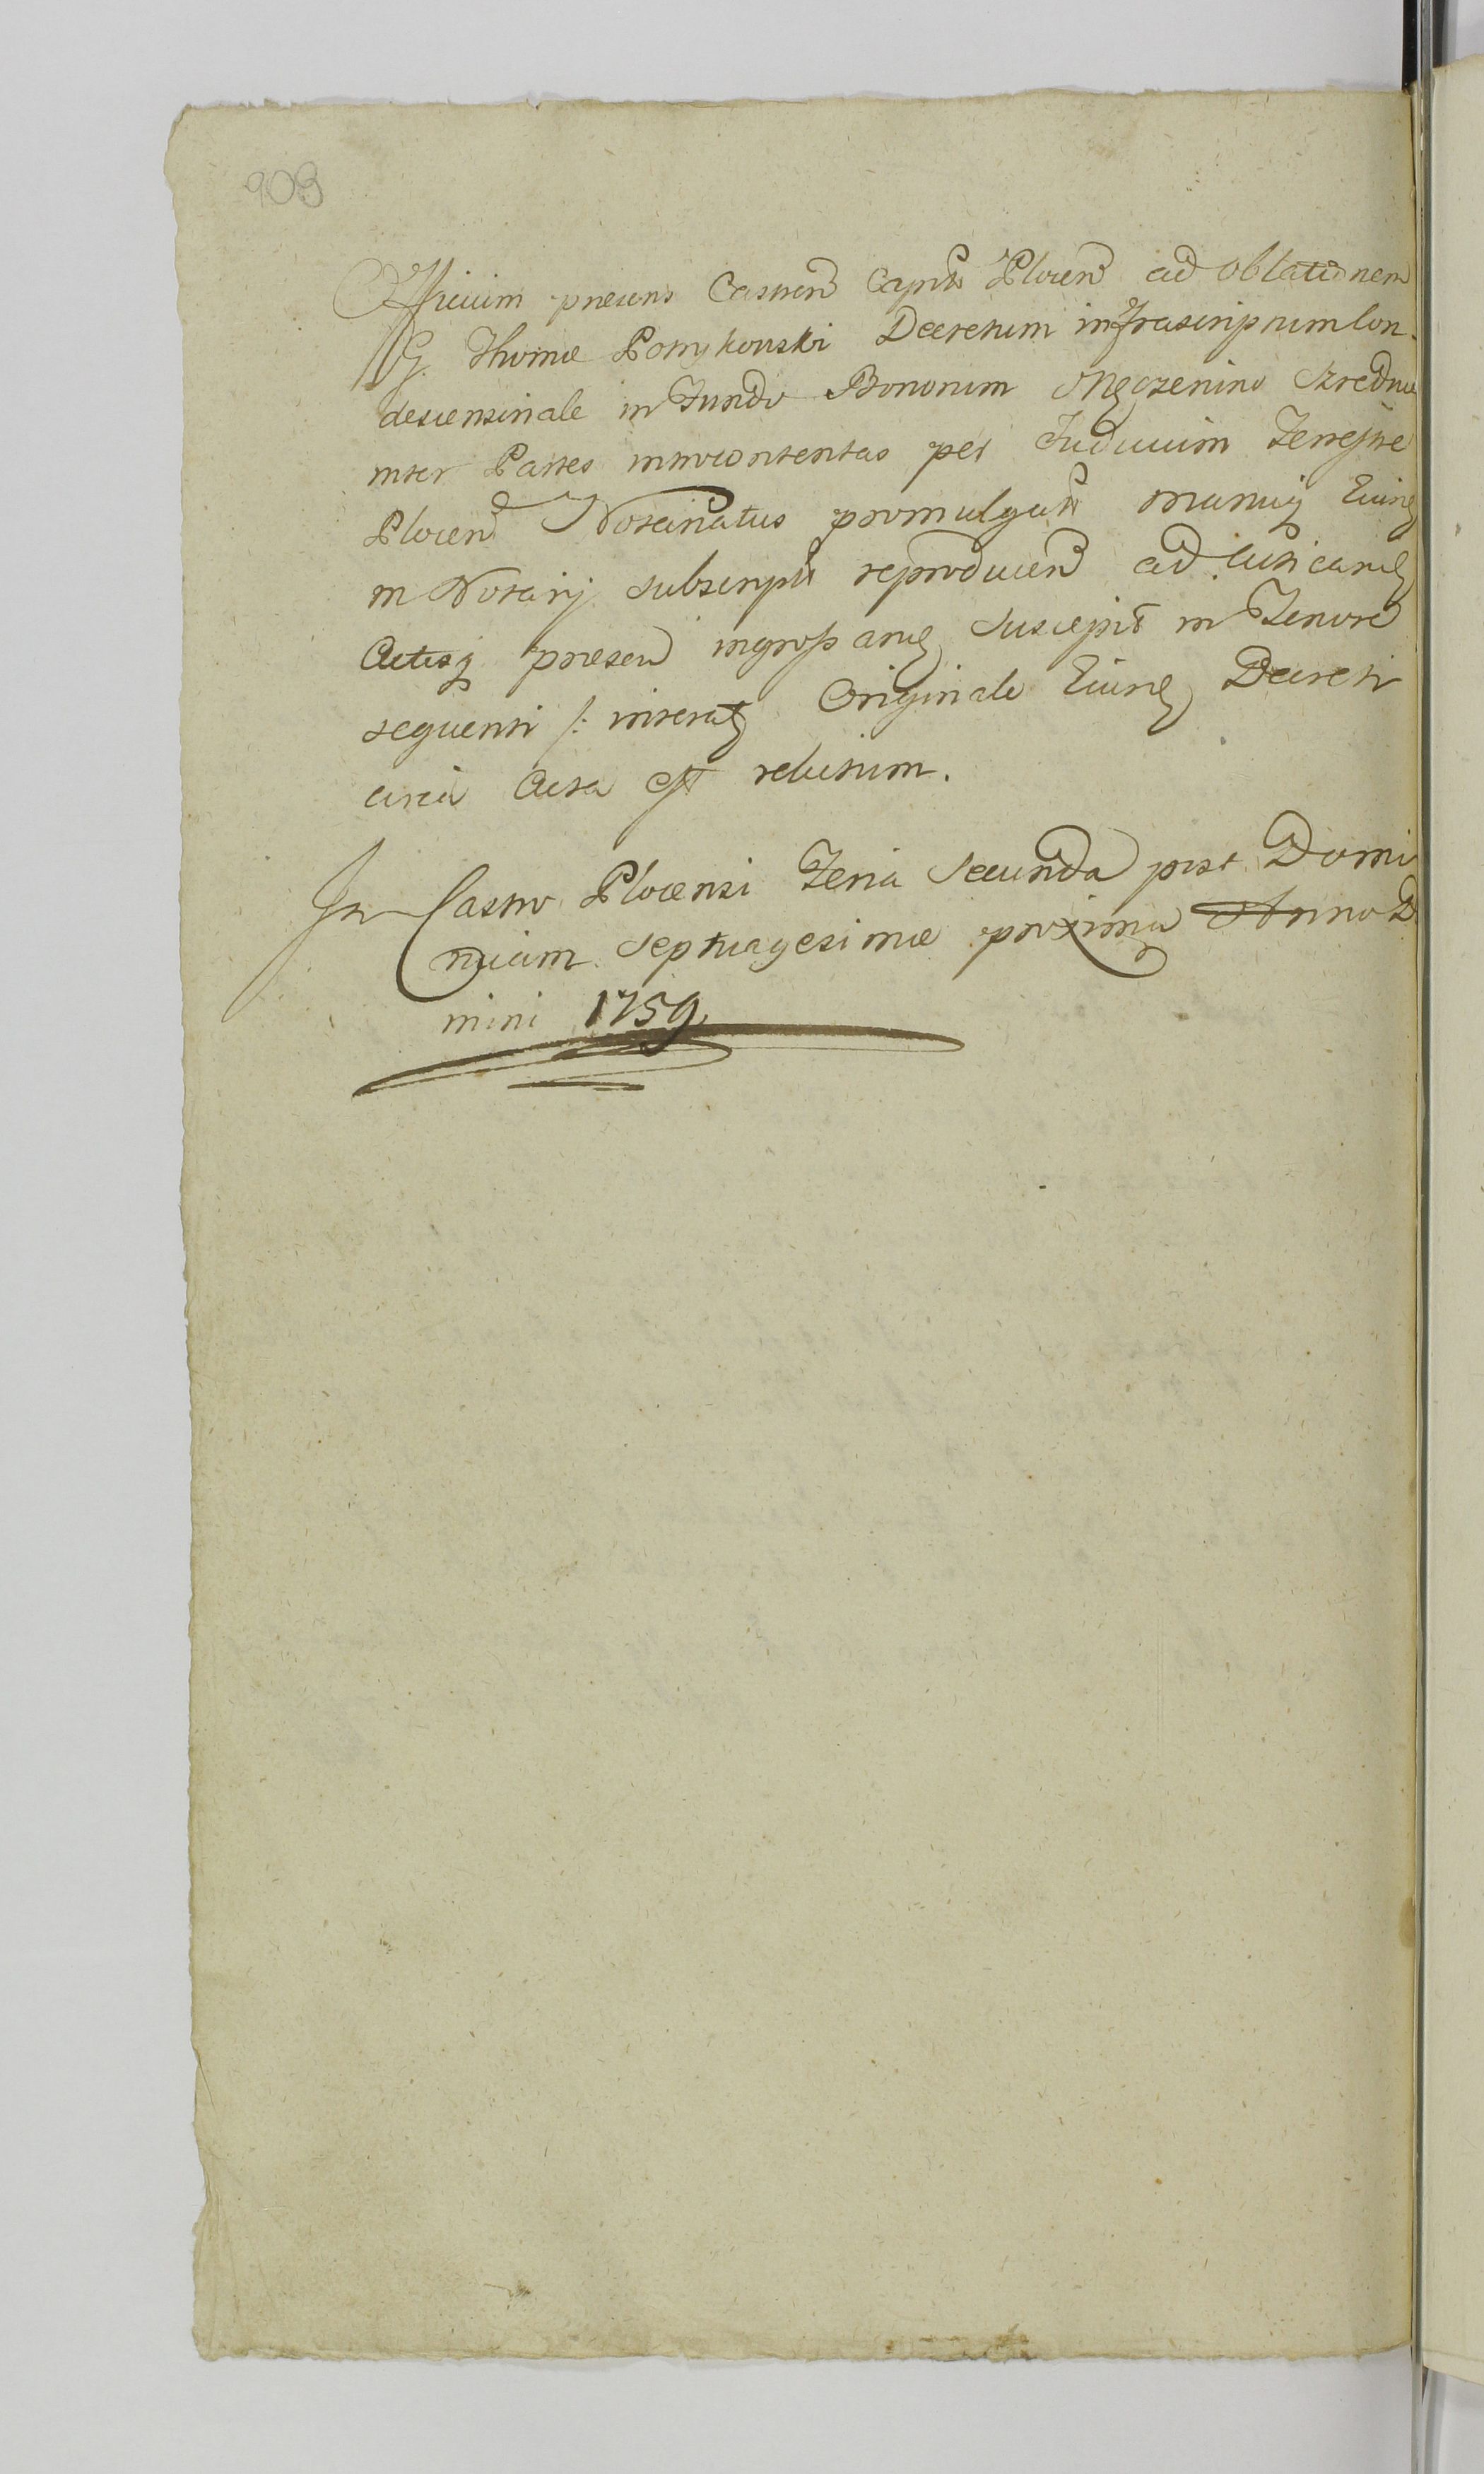 909
Officium præsens Castren Captt Plocen ad oblationem
G. Thomæ Pomykowski Decretum infrascriptum Con-
descensinale in Fundo Bonorum Męczenino Szrednie
inter Partes introcontentas per Judicium Terrestre
Plocen Notariatus promulgatt manuq Eiusd
m Notarij subscriptt reproducen ad
Actisq præsen ingrossand suscepit in Tenore
sequenti /: inserat Originale Eiusd Decreti
circa Acta est relictum.
In Castro Plocensi Feria Secunda post Domi
nicam Septuagesimæ proxima Anno D
mini 1759